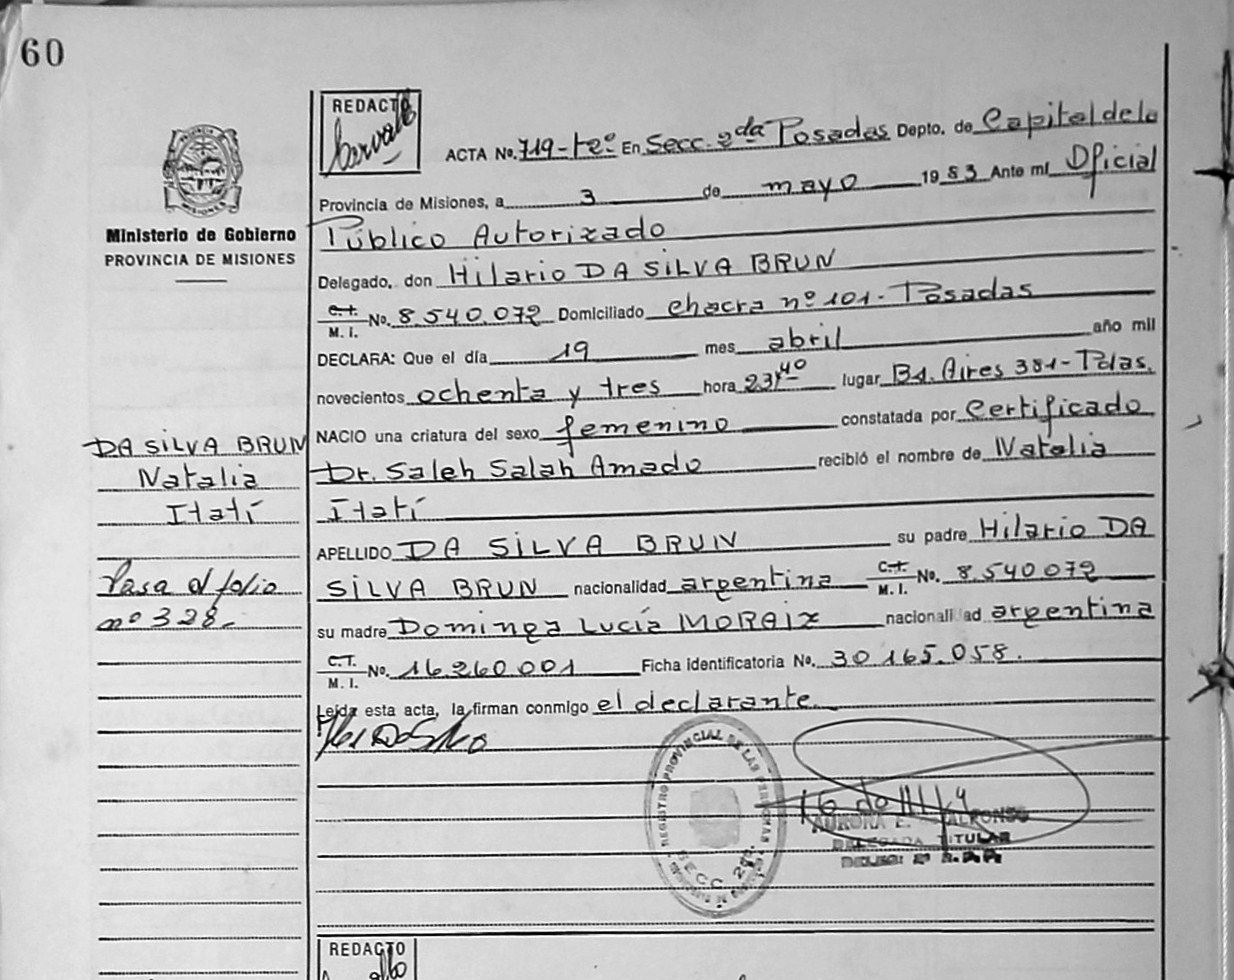 60
REDACTO
ACTA No. 719-te° En Secc. 2da Posadas Depto. de Capital de la
Provincia de Misiones, a 3 de mayo 1983 Ante mí Oficial
Público Autorizado
Ministerio de Gobierno
PROVINCIA DE MISIONES
Delegado, don Hilario DA SILVA BRUN
C.I. M. I. No. 8.540.072 Domiciliado chacra nº 101- Posadas
DECLARA: Que el día 19 mes abril año mil
novecientos ochenta y tres hora 23,40 lugar Bs. Aires 381- Pdas.
NACIO una criatura del sexo femenino constatada por Certificado
Dr. Saleh Salah Amado recibió el nombre de Natalia
Itatí
DA SILVA BRUN
Natalia
Itatí
APELLIDO DA SILVA BRUN su padre Hilario DA
SILVA BRUN nacionalidad argentina C.I. M. I. No. 8.540.072
Pasa al folio
nº 328-
su madre Dominga Lucía MORAIX nacionalidad argentina
C.T. M. I. No. 16.260.001 Ficha identificatoria No. 30.165.058.
Leída esta acta, la firman conmigo el declarante.
REGISTRO PROVINCIAL DE LAS PERSONAS
SECC. 2da.
DELEGADA TITULAR
REDACTO